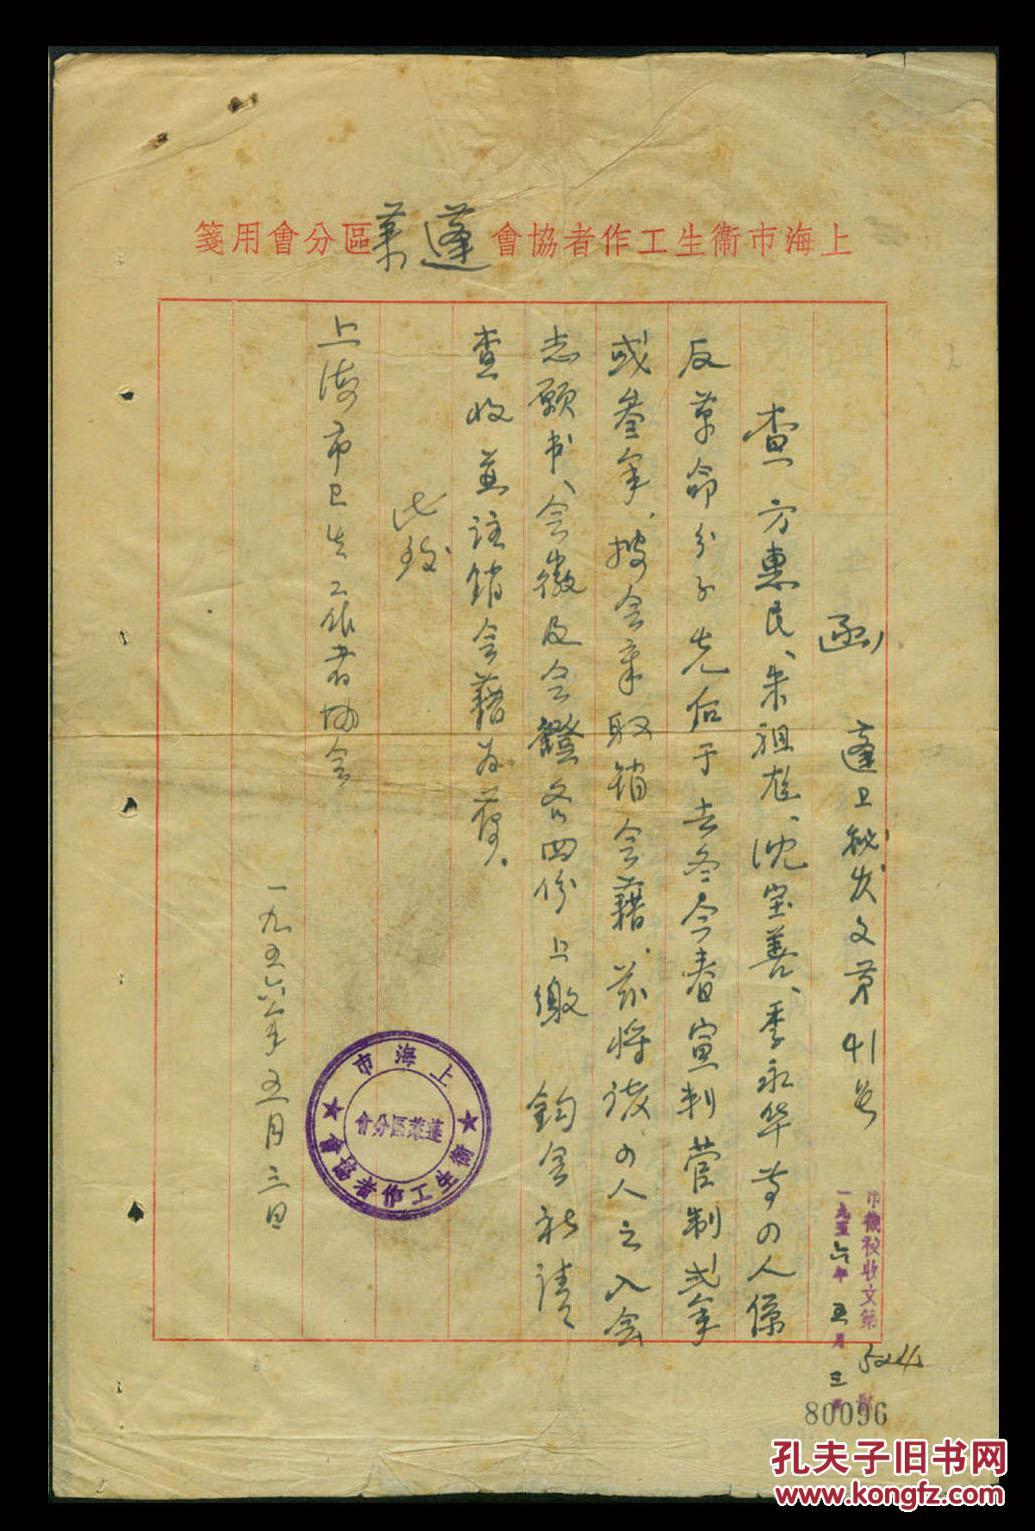 上海市衛生工作者協會蓬莱區分會用箋
函 蓬卫秘发文第41号
查方惠民、朱祖尨、沈宝善、季永华等四人係
反革命分子先后于去冬今春宣判管制弍年
或叁年，按会章取销会藉，兹将该四人之入会
志願书、会徽及会證各四份上缴 鈞会祈请
查收並註销会藉为荷。
此致
上海市卫生工作者协会
一九五六年五月三日
上海市
衛生工作者協會
蓬萊區分會
市衛秘收文第524
一九五六年五月三
80096
孔夫子旧书网
www.kongfz.com